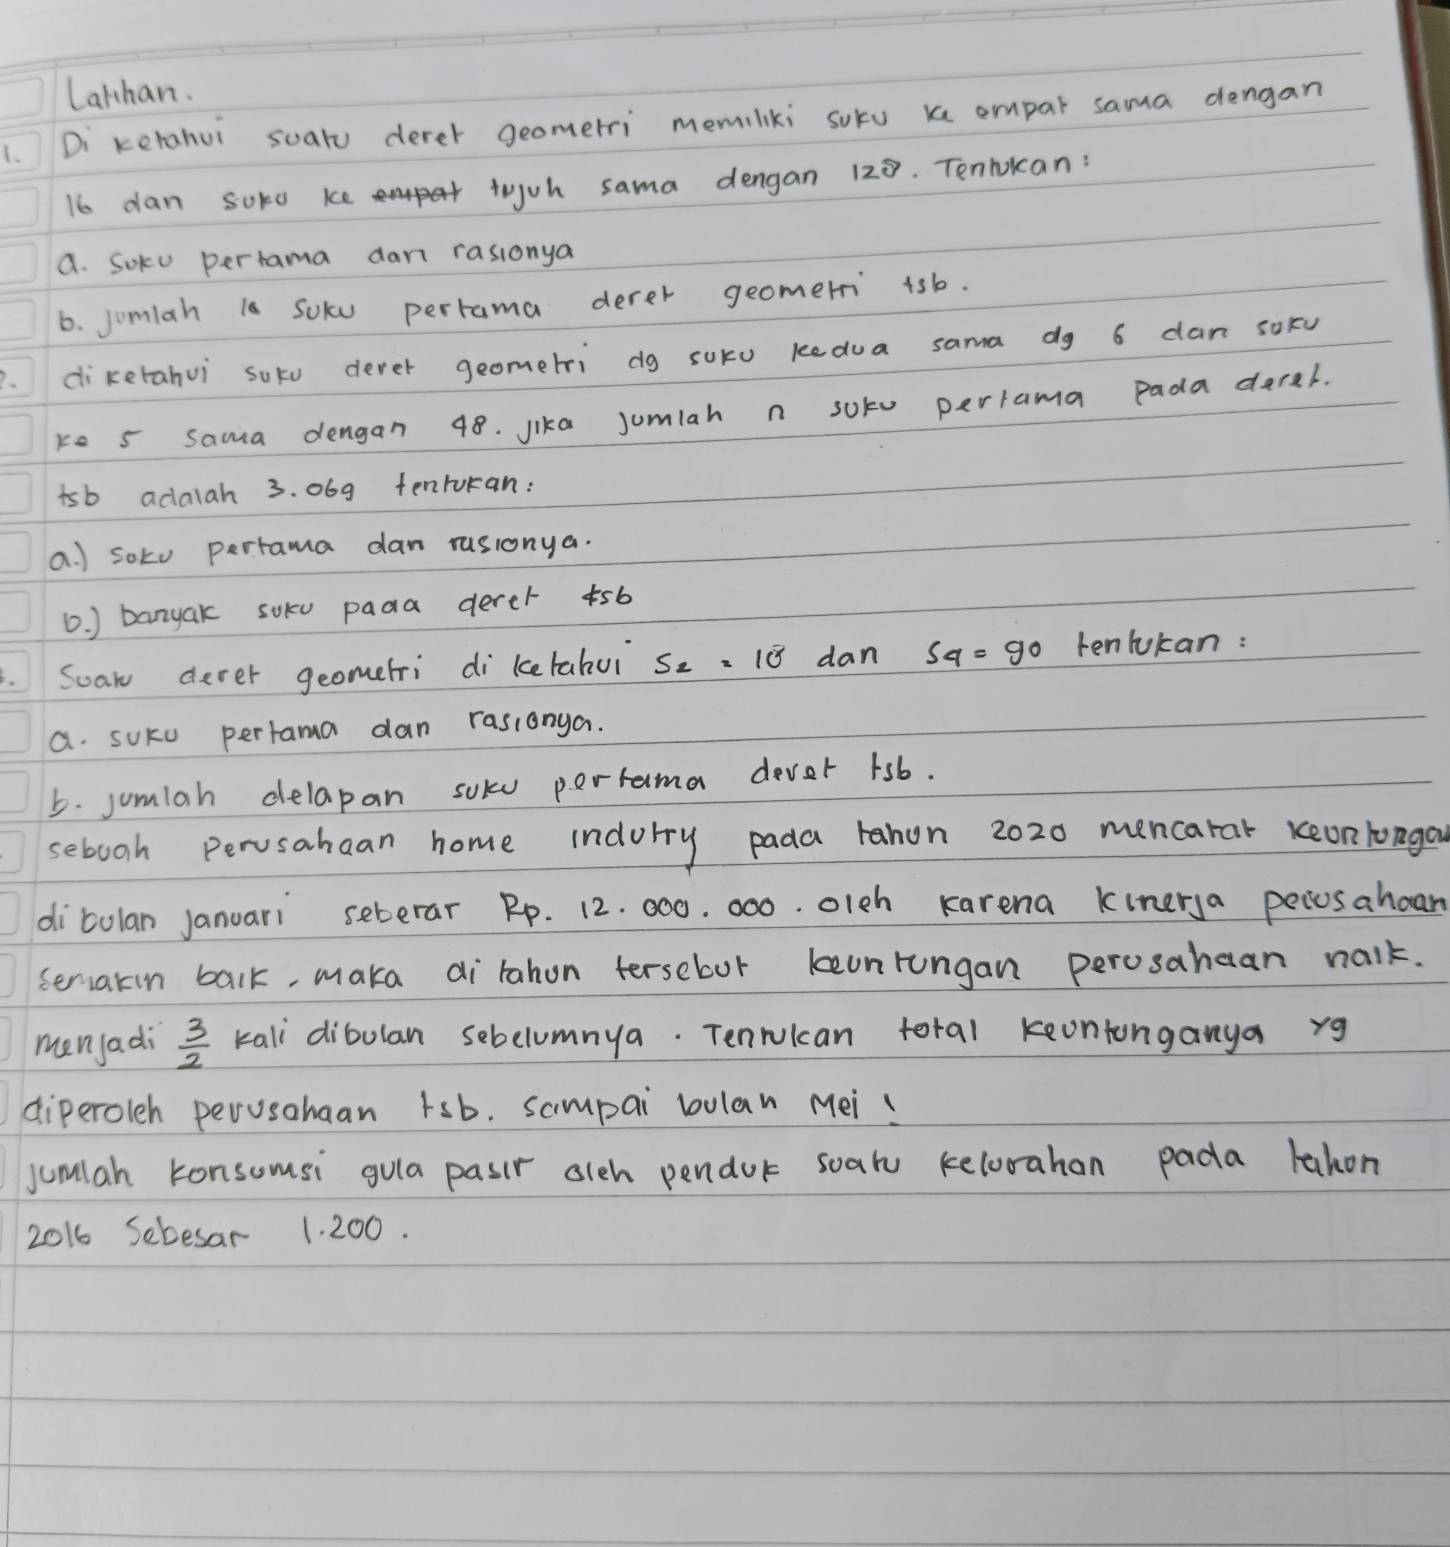 Latihan.
1. Di ketahui suatu deret geometri memiliki suku ke empat sama dengan
16 dan suku ke empat tujuh sama dengan 128. Tentukan:
a. suku pertama dan rasionya
b. jumlah 18 suku pertama deret geometri tsb.
2. diketahui suku deret geometri dg suku kedua sama dg 6 dan suku
ke 5 sama dengan 48. jika jumlah n suku pertama pada deret.
tsb adalah 3.069 tentukan:
a.) suku pertama dan rasionya.
b.) banyak suku pada deret tsb
3. Suatu deret geometri di ketahui S2 = 18 dan S4 = 90 tentukan:
a. suku pertama dan rasionya.
b. jumlah delapan suku pertama deret tsb.
sebuah perusahaan home indutry pada tahun 2020 mencatat keuntungan
di bulan januari sebesar Rp. 12.000.000. oleh karena kinerja perusahaan
semakin baik, maka di tahun tersebut keuntungan perusahaan naik.
menjadi 3/2 kali dibulan sebelumnya. Tentukan total keuntunganya yg
diperoleh perusahaan tsb. sampai bulan Mei!
jumlah konsumsi gula pasir oleh penduk suatu kelurahan pada tahun
2016 Sebesar 1.200.